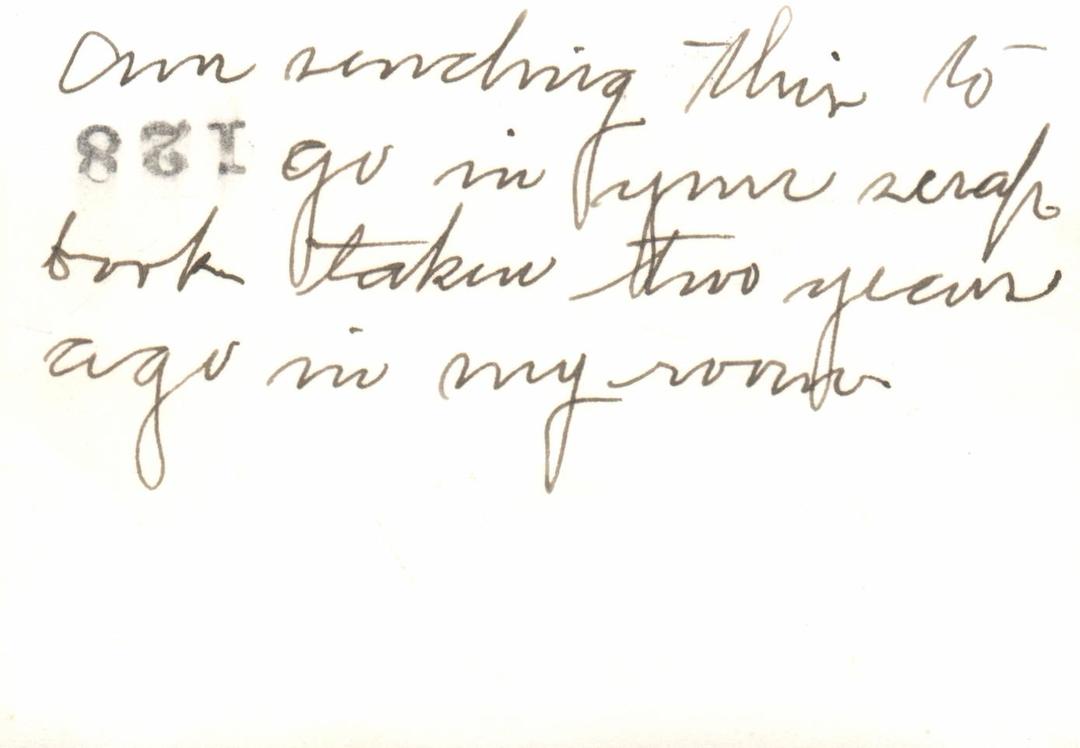 Am sending this to
128
go in your scrap
book taken two years
ago in my room